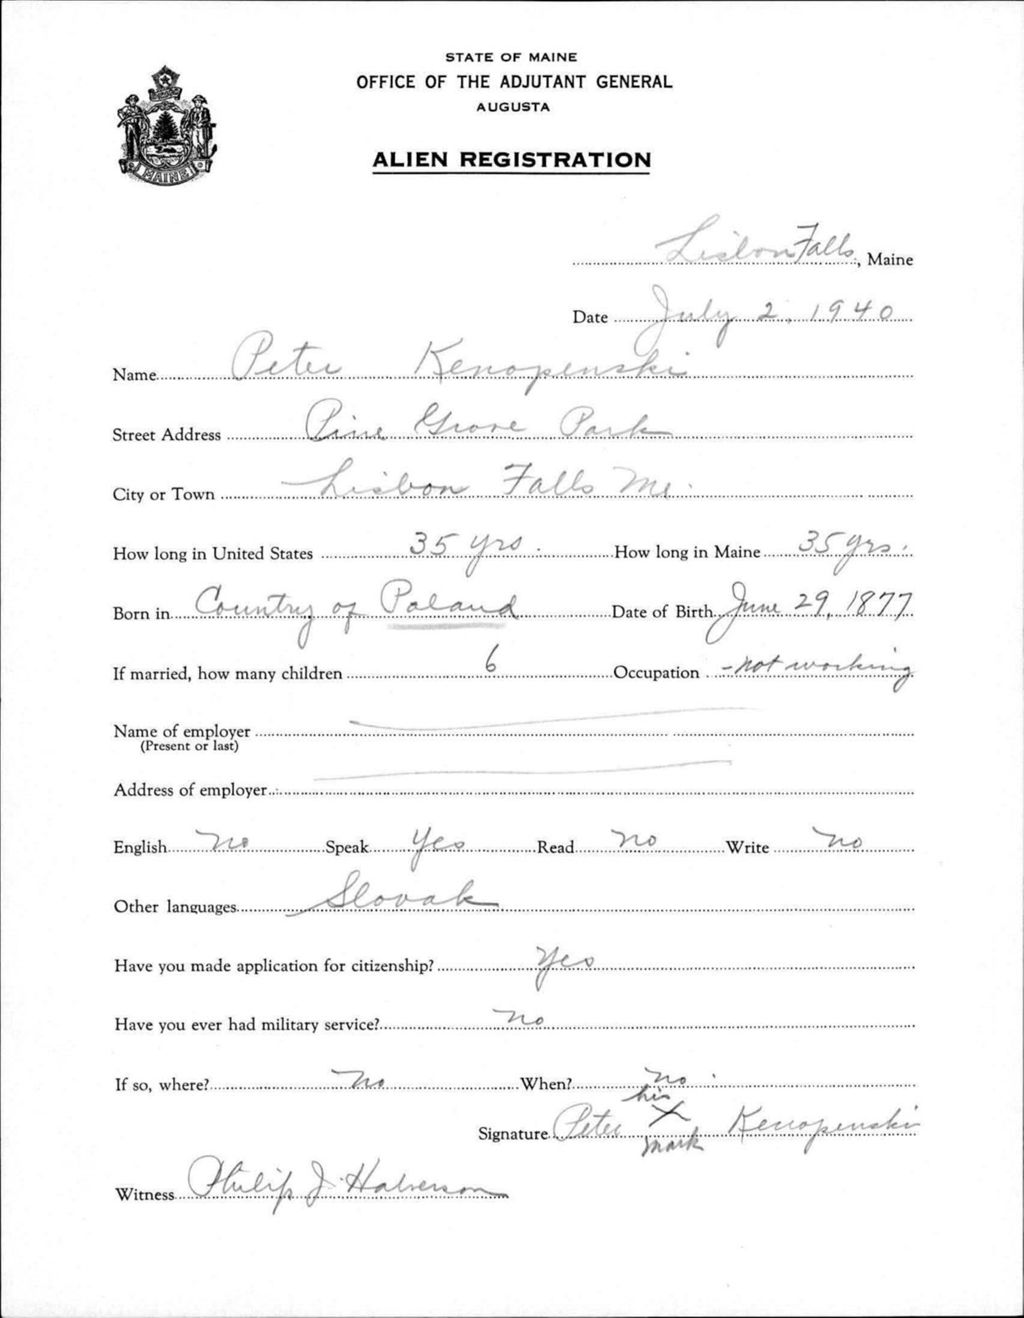 STATE OF MAINE
OFFICE OF THE ADJUTANT GENERAL
AUGUSTA
ALIEN REGISTRATION
MAINE
Lisbon Falls, Maine
Date July 2, 1940
Name Peter Kenopenski
Street Address Pine Grove Park
City or Town Lisbon Falls Me.
How long in United States 35 yrs. How long in Maine 35 yrs.
Born in Country of Poland Date of Birth June 29, 1877
If married, how many children 6 Occupation - not working
Name of employer
(Present or last)
Address of employer
English no Speak Yes Read no Write no
Other languages Slovak
Have you made application for citizenship? Yes
Have you ever had military service? no
If so, where? no When? no
his
Signature Peter X Kenopenski
mark
Witness Philip J. Halverson